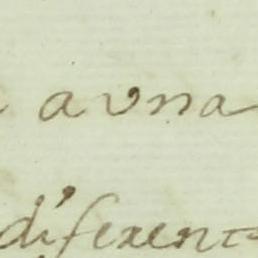 a vna
diferent